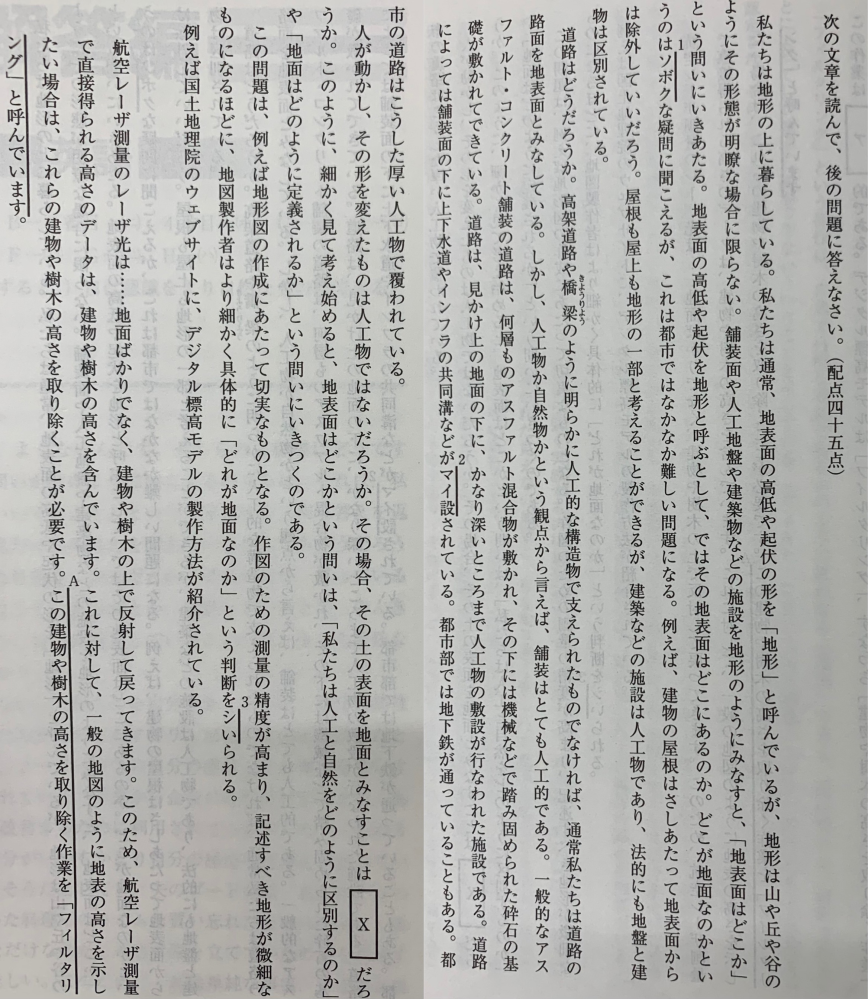 次の文章を読んで、後の問題に答えなさい。（配点四十五点）
私たちは地形の上に暮らしている。私たちは通常、地表面の高低や起伏の形を「地形」と呼んでいるが、地形は山や丘や谷の
ようにその形態が明瞭な場合に限らない。舗装面や人工地盤や建築物などの施設を地形のようにみなすと、「地表面はどこか」
という問いにいきあたる。地表面の高低や起伏を地形と呼ぶとして、ではその地表面はどこにあるのか。どこが地面なのかとい
1
うのはソボクな疑問に聞こえるが、これは都市ではなかなか難しい問題になる。例えば、建物の屋根はさしあたって地表面から
は除外していいだろう。屋根も屋上も地形の一部と考えることができるが、建築などの施設は人工物であり、法的にも地盤と建
物は区別されている。
道路はどうだろうか。高架道路や橋梁のように明らかに人工的な構造物で支えられたものでなければ、通常私たちは道路の
きょうりょう
路面を地表面とみなしている。しかし、人工物か自然物かという観点から言えば、舗装はとても人工的である。一般的なアス
ファルト・コンクリート舗装の道路は、何層ものアスファルト混合物が敷かれ、その下には機械などで踏み固められた砕石の基
礎が敷かれてできている。道路は、見かけ上の地面の下に、かなり深いところまで人工物の敷設が行なわれた施設である。道路
2
によっては舗装面の下に上下水道やインフラの共同溝などがマイ設されている。都市部では地下鉄が通っていることもある。都
市の道路はこうした厚い人工物で覆われている。
人が動かし、その形を変えたものは人工物ではないだろうか。その場合、その土の表面を地面とみなすことは X だろ
うか。このように、細かく見て考え始めると、地表面はどこかという問いは、「私たちは人工と自然をどのように区別するのか」
や「地面はどのように定義されるか」という問いにいきつくのである。
この問題は、例えば地形図の作成にあたって切実なものとなる。作図のための測量の精度が高まり、記述すべき地形が微細な
3
ものになるほどに、地図製作者はより細かく具体的に「どれが地面なのか」という判断をシいられる。
例えば国土地理院のウェブサイトに、デジタル標高モデルの製作方法が紹介されている。
航空レーザ測量のレーザ光は……地面ばかりでなく、建物や樹木の上で反射して戻ってきます。このため、航空レーザ測量
で直接得られる高さのデータは、建物や樹木の高さを含んでいます。これに対して、一般の地図のように地表の高さを示し
A
たい場合は、これらの建物や樹木の高さを取り除くことが必要です。この建物や樹木の高さを取り除く作業を「フイルタリ
ング」と呼んでいます。